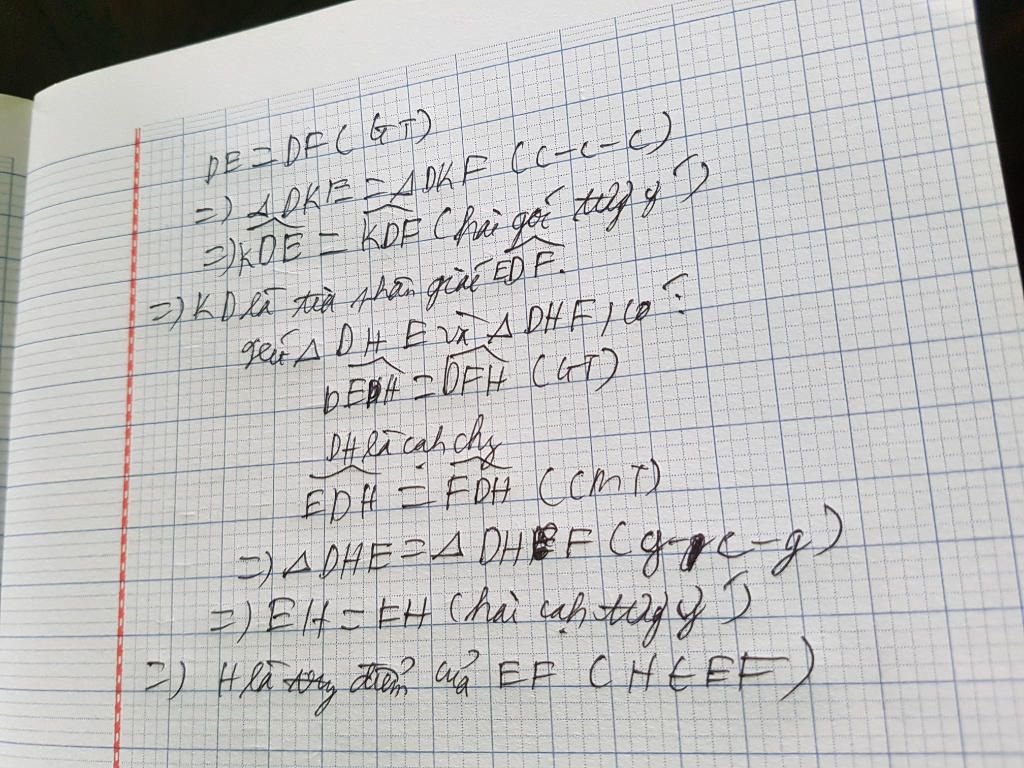 DE = DF ( GT)
=) △DKE = △DKF (C-C-C)
=) KDE = KDF (hai góc tứg ý)
=) KD là tia phân giác EDF.
xét △ DHE và △ DHF, có:
DEH = DFH (GT)
DH là cạh chg
EDH = FDH (CMT)
=) △DHE = △ DHF (g-c-g)
=) EH = FH (hai cạh tứg ý)
=) H là trug điểm của EF (H∈EF)